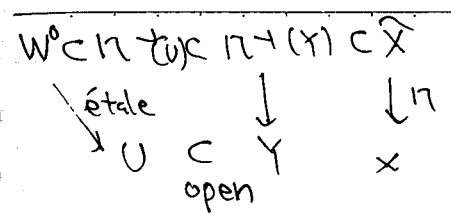 W⁰ ⊂ η⁻¹(U) ⊂ η⁻¹(Y) ⊂ X̃
étale ↓ ↓ η
U ⊂ Y X
open